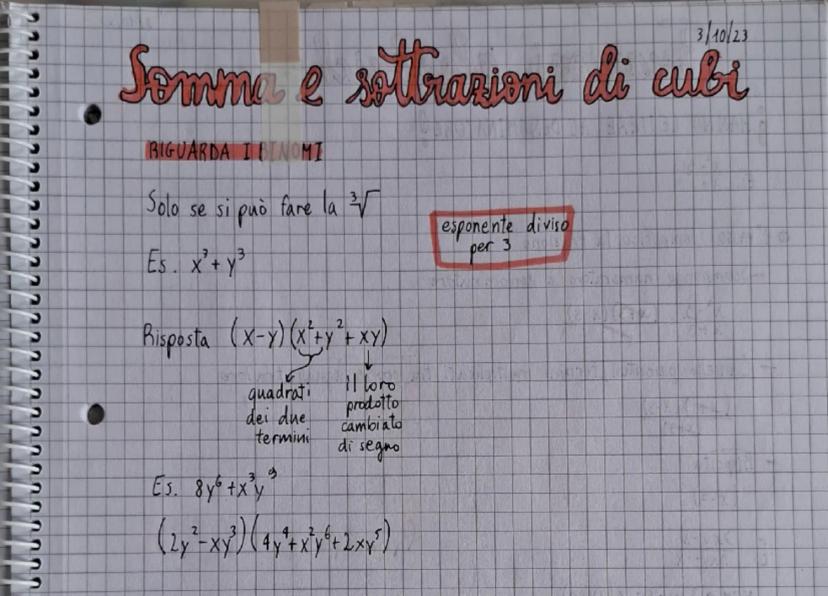 3/10/23
Somma e sottrazioni di cubi
RIGUARDA I BINOMI
Solo se si può fare la ³√
esponente diviso
per 3
Es. x³ + y³
Risposta (x-y)(x²+y²+xy)
quadrati
dei due
termini
il loro
prodotto
cambiato
di segno
Es. 8y⁶ + x³y⁹
(2y²-xy³)(4y⁴+x²y⁶+2xy⁵)